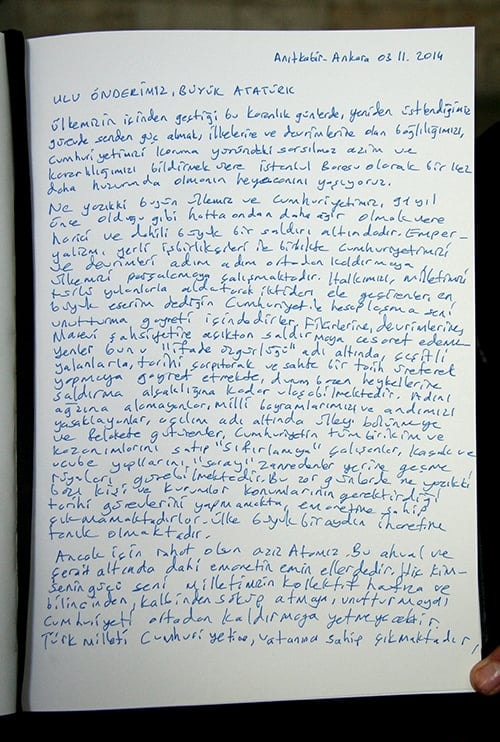 Anıtkabir - Ankara 03 11. 2014
ULU ÖNDERİMİZ, BÜYÜK ATATÜRK
Ülkemizin içinden geçtiği bu karanlık günlerde, yeniden üstlendiğimiz
görevde senden güç almak, ilkelerine ve devrimlerine olan bağlılığımızı,
Cumhuriyetimizi koruma yönündeki sarsılmaz azim ve
kararlılığımızı bildirmek üzere İstanbul Barosu olarak bir kez
daha huzurunda olmanın heyecanını yaşıyoruz.
Ne yazıkki bugün ülkemiz ve Cumhuriyetimiz, 91 yıl
önce olduğu gibi hatta ondan daha ağır olmak üzere
harici ve dahili büyük bir saldırı altındadır. Emper-
yalizm, yerli işbirlikçileri ile birlikte Cumhuriyetimizi
ve devrimleri adım adım ortadan kaldırmaya
ülkemizi parçalamaya çalışmaktadır. Halkımızı, milletimizi
türlü yalanlarla aldatarak iktidarı ele geçirenler, en
büyük eserim dediğin Cumhuriyet ile hesaplaşma seni
unutturma gayreti içindedirler. Fikirlerine, devrimlerine,
Manevi şahsiyetine açıktan saldırmaya cesaret edeme-
yenler bunu "ifade özgürlüğü" adı altında, çeşitli
yalanlarla, tarihi çarpıtarak ve sahte bir tarih üreterek
yapmaya gayret etmekte, durum bazen heykellerine
saldırma alçaklığına kadar ulaşabilmektedir. Adını
ağzına alamayanlar, Milli bayramlarımızı ve andımızı
yasaklayanlar, açılım adı altında ülkeyi bölünmeye
ve felakete götürenler, Cumhuriyetin tüm birikim ve
kazanımlarını satıp "sıfırlamaya" çalışanlar, kaçak ve
ucube yapılarını, "saray" zannedenler yerine geçme
rüyaları görebilmektedir. Bu zor günlerde ne yazıkki
bazı kişi ve kurumlar konumlarının gerektirdiği
tarihi görevlerini yapmamakta, emanetine sahip
çıkmamaktadırlar. Ülke büyük bir aydın ihanetine
tanık olmaktadır.
Ancak için rahat olsun aziz Atamız. Bu ahval ve
şerait altında dahi emanetin emin ellerdedir. Hiç kim-
senin gücü seni milletimizin kollektif hafıza ve
bilincinden, kalbinden söküp atmaya, unutturmaya,
Cumhuriyeti ortadan kaldırmaya yetmeyecektir.
Türk Milleti Cumhuriyetine, vatanına sahip çıkmaktadır,